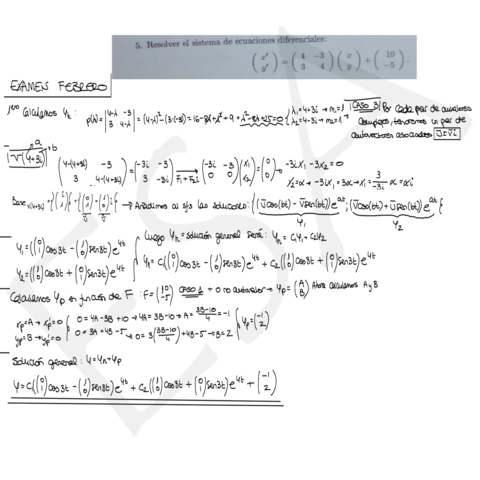 5. Resolver el sistema de ecuaciones diferenciales:
(x' y') = (4 -3 3 4)(x y) + (10 -5)
EXAMEN FEBRERO
1ero Calculamos Yh
p(λ) = |4-λ -3 3 4-λ| = (4-λ)² - (3·(-3)) = 16 - 8λ + λ² + 9 = λ² - 8λ + 25 = 0
λ1 = 4+3i → m1 = 1
λ2 = 4-3i → m2 = 1
CASO 3 Por cada par de autovalores complejos, tenemos un par de autovectores asociados ū ± v̄i
a b
V(4+3i)
(4-(4+3i) -3 3 4-(4+3i)) = (-3i -3 3 -3i) → F1+F2i (-3i -3 0 0)(x1 x2) = (0 0) → -3ix1 - 3x2 = 0
x2 = α → -3ix1 = 3α → x1 = 3/-3i α = αi
Base V(4+3i) = {(i 1)} = {(0 1) + (1 0)i} → Añadimos al s/s las soluciones: {(ū cos(bt) - v̄ sen(bt))e^at ; (v̄ cos(bt) + ū sen(bt))e^at}
Y1 Y2
Y1 = ((0 1) cos3t - (1 0) sen3t) e^4t
Y2 = ((1 0) cos3t + (0 1) sen3t) e^4t
Luego Yh = solución general será: Yh = C1Y1 + C2Y2
Yh = C1((0 1) cos3t - (1 0) sen3t) e^4t + C2((1 0) cos3t + (0 1) sen3t) e^4t
Calculamos Yp en función de F: F = (10 -5) CASO 1 + 0 no autovalor → Yp = (A B) Ahora calculamos A y B
xp = A → xp' = 0
yp = B → yp' = 0
0 = 4A - 3B + 10 → 4A = 3B - 10 → A = 3B-10/4 = -1
0 = 3A + 4B - 5 → 0 = 3(3B-10/4) + 4B - 5 → B = 2
Yp = (-1 2)
Solución general: Y = Yh + Yp
Y = C1((0 1) cos3t - (1 0) sen3t) e^4t + C2((1 0) cos3t + (0 1) sen3t) e^4t + (-1 2)